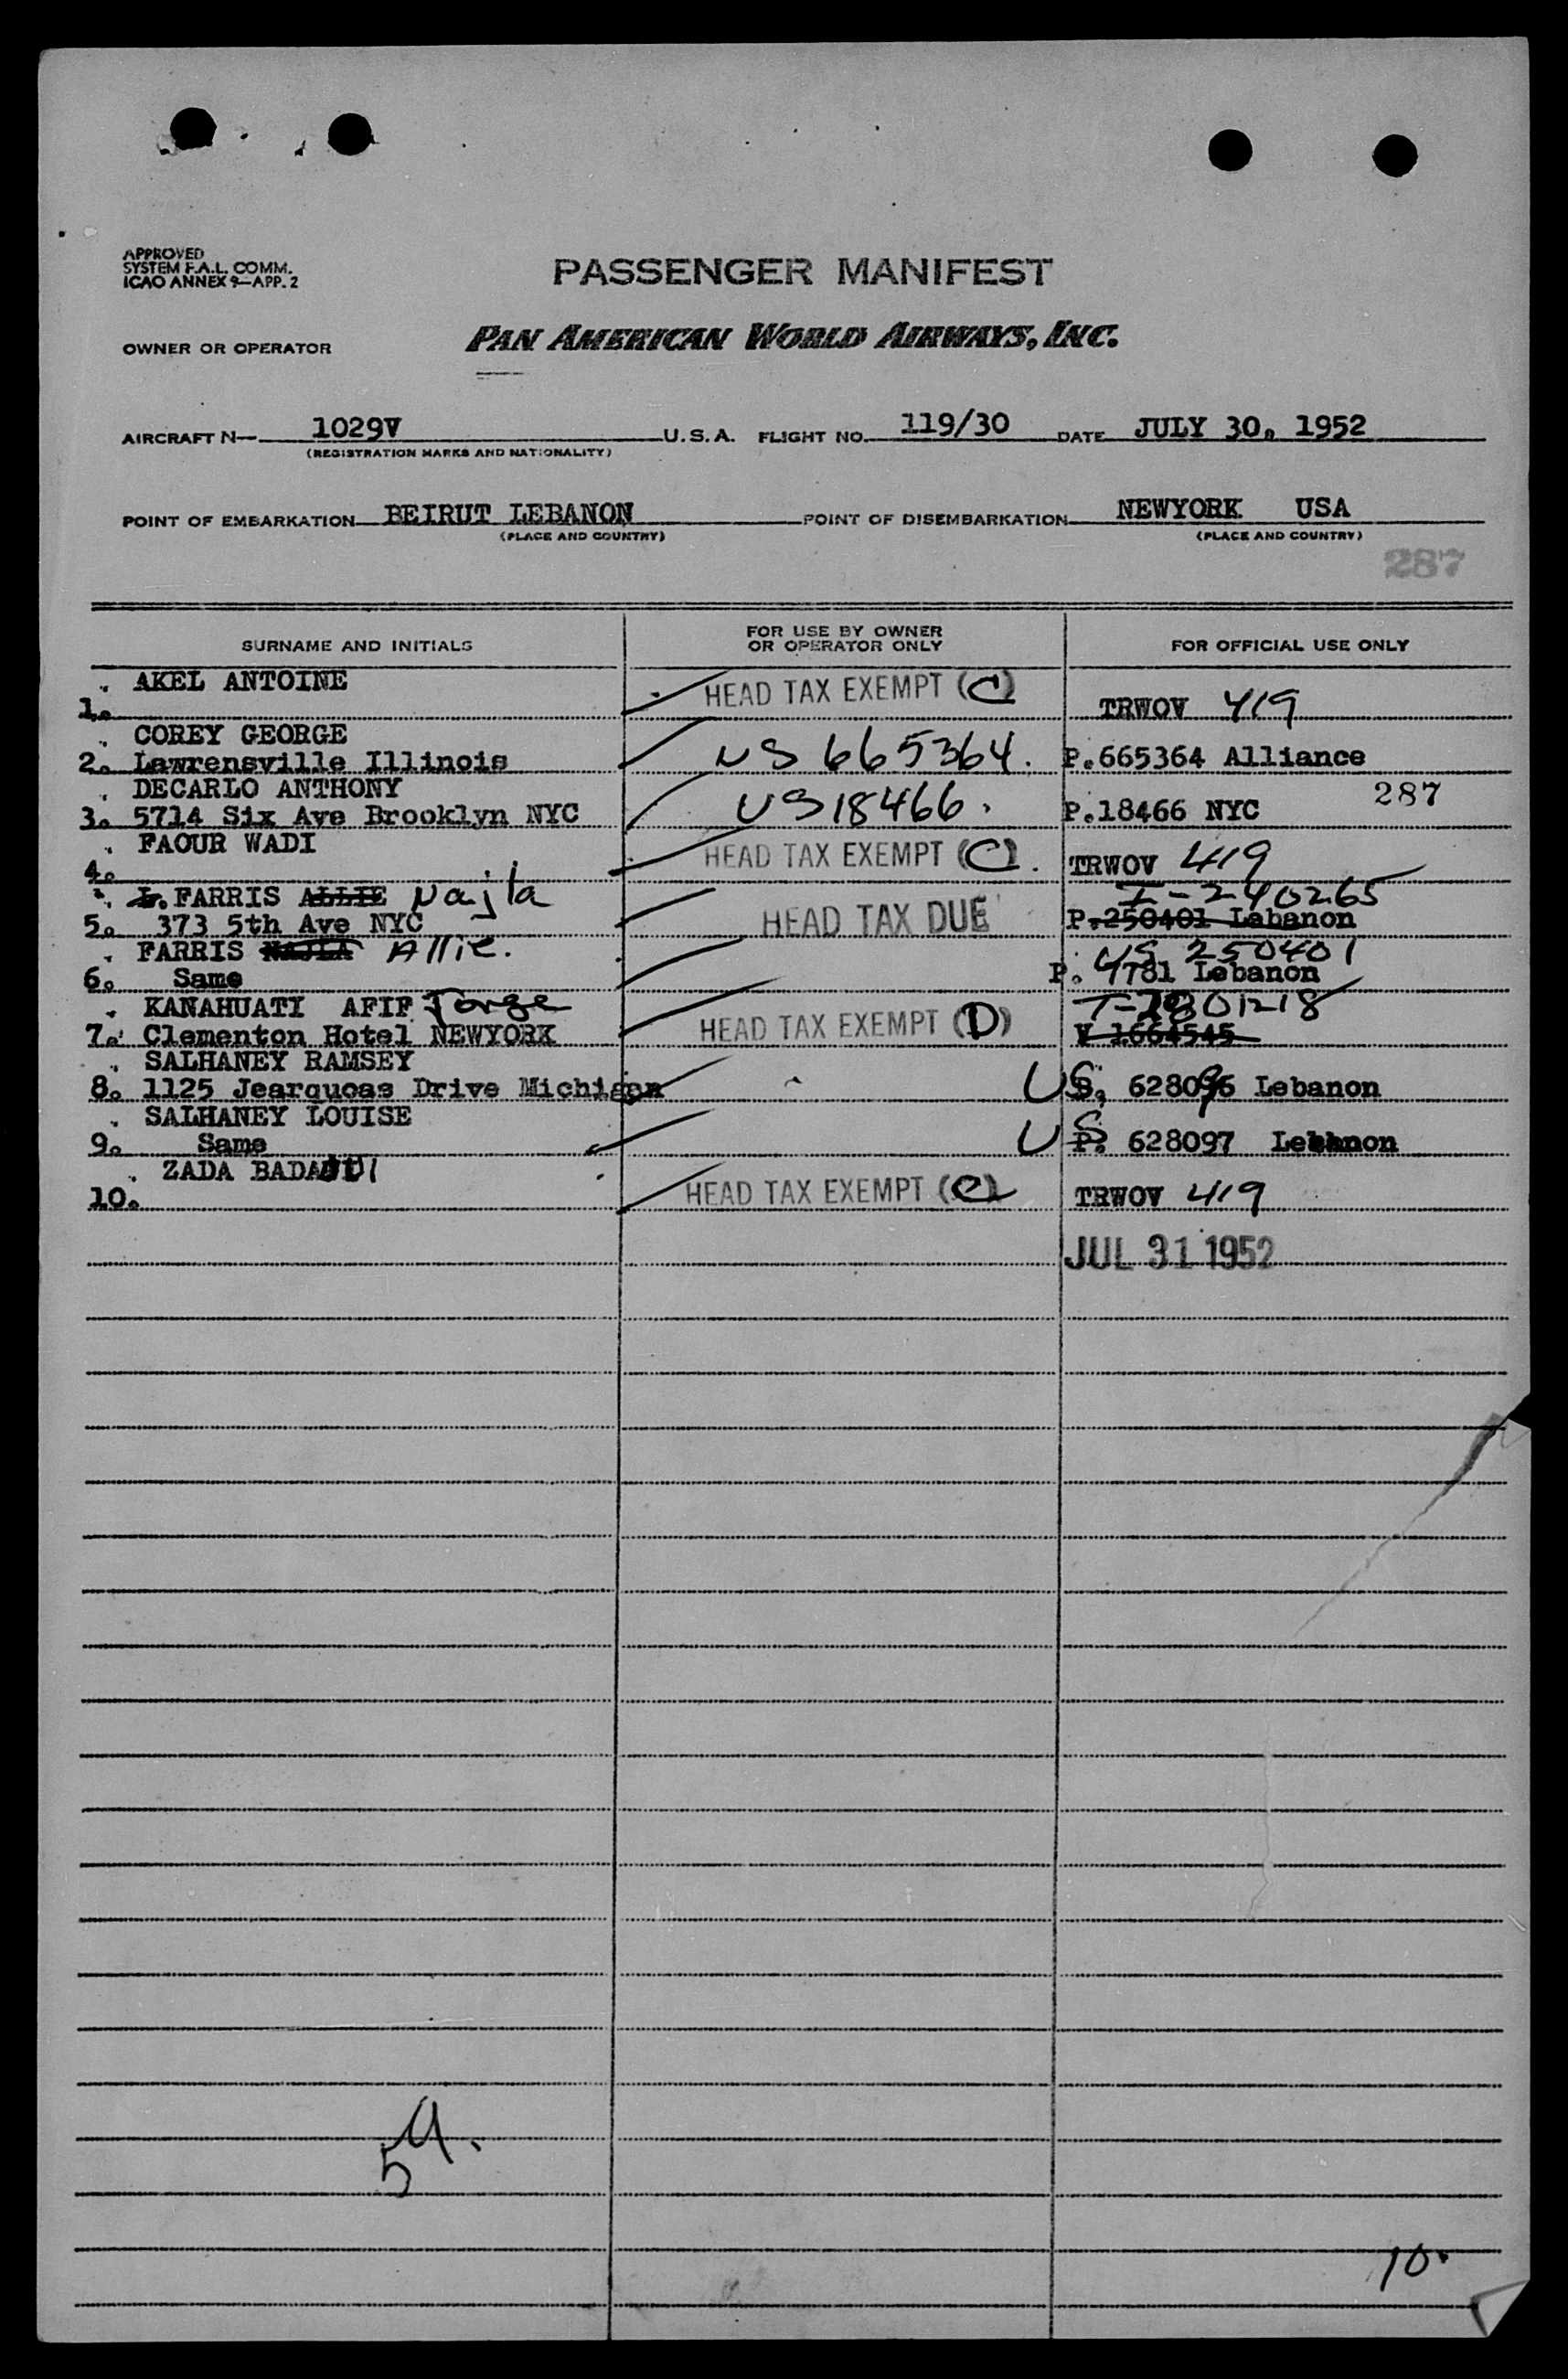 APPROVED
SYSTEM F.A.L. COMM.
ICAO ANNEX 9—APP. 2
PASSENGER MANIFEST
OWNER OR OPERATOR PAN AMERICAN WORLD AIRWAYS, INC.
AIRCRAFT N— 1029V U.S.A. FLIGHT NO. 119/30 DATE JULY 30, 1952
(REGISTRATION MARKS AND NATIONALITY)
POINT OF EMBARKATION BEIRUT LEBANON POINT OF DISEMBARKATION NEWYORK USA
(PLACE AND COUNTRY) (PLACE AND COUNTRY)
287
SURNAME AND INITIALS FOR USE BY OWNER OR OPERATOR ONLY FOR OFFICIAL USE ONLY
AKEL ANTOINE
1. HEAD TAX EXEMPT (C) TRWOV 419
COREY GEORGE
2. Lawrensville Illinois US 665364. P.665364 Alliance
DECARLO ANTHONY 287
3. 5714 Six Ave Brooklyn NYC US18466. P.18466 NYC
FAOUR WADI
4. HEAD TAX EXEMPT (C). TRWOV 419
FARRIS ALLIE Najla I-240265
5. 373 5th Ave NYC HEAD TAX DUE P.250401 Labanon
FARRIS NAJLA Allie. US 250401
6. Same P. 4781 Lebanon
KANAHUATI AFIF Jorge
7. Clementon Hotel NEWYORK HEAD TAX EXEMPT (D) V 1664545
SALHANEY RAMSEY
8. 1125 Jearquoas Drive Michigan US 628096 Lebanon
SALHANEY LOUISE
9. Same US P. 628097 Lebanon
ZADA BADAUUI
10. HEAD TAX EXEMPT (C) TRWOV 419
JUL 31 1952
10.